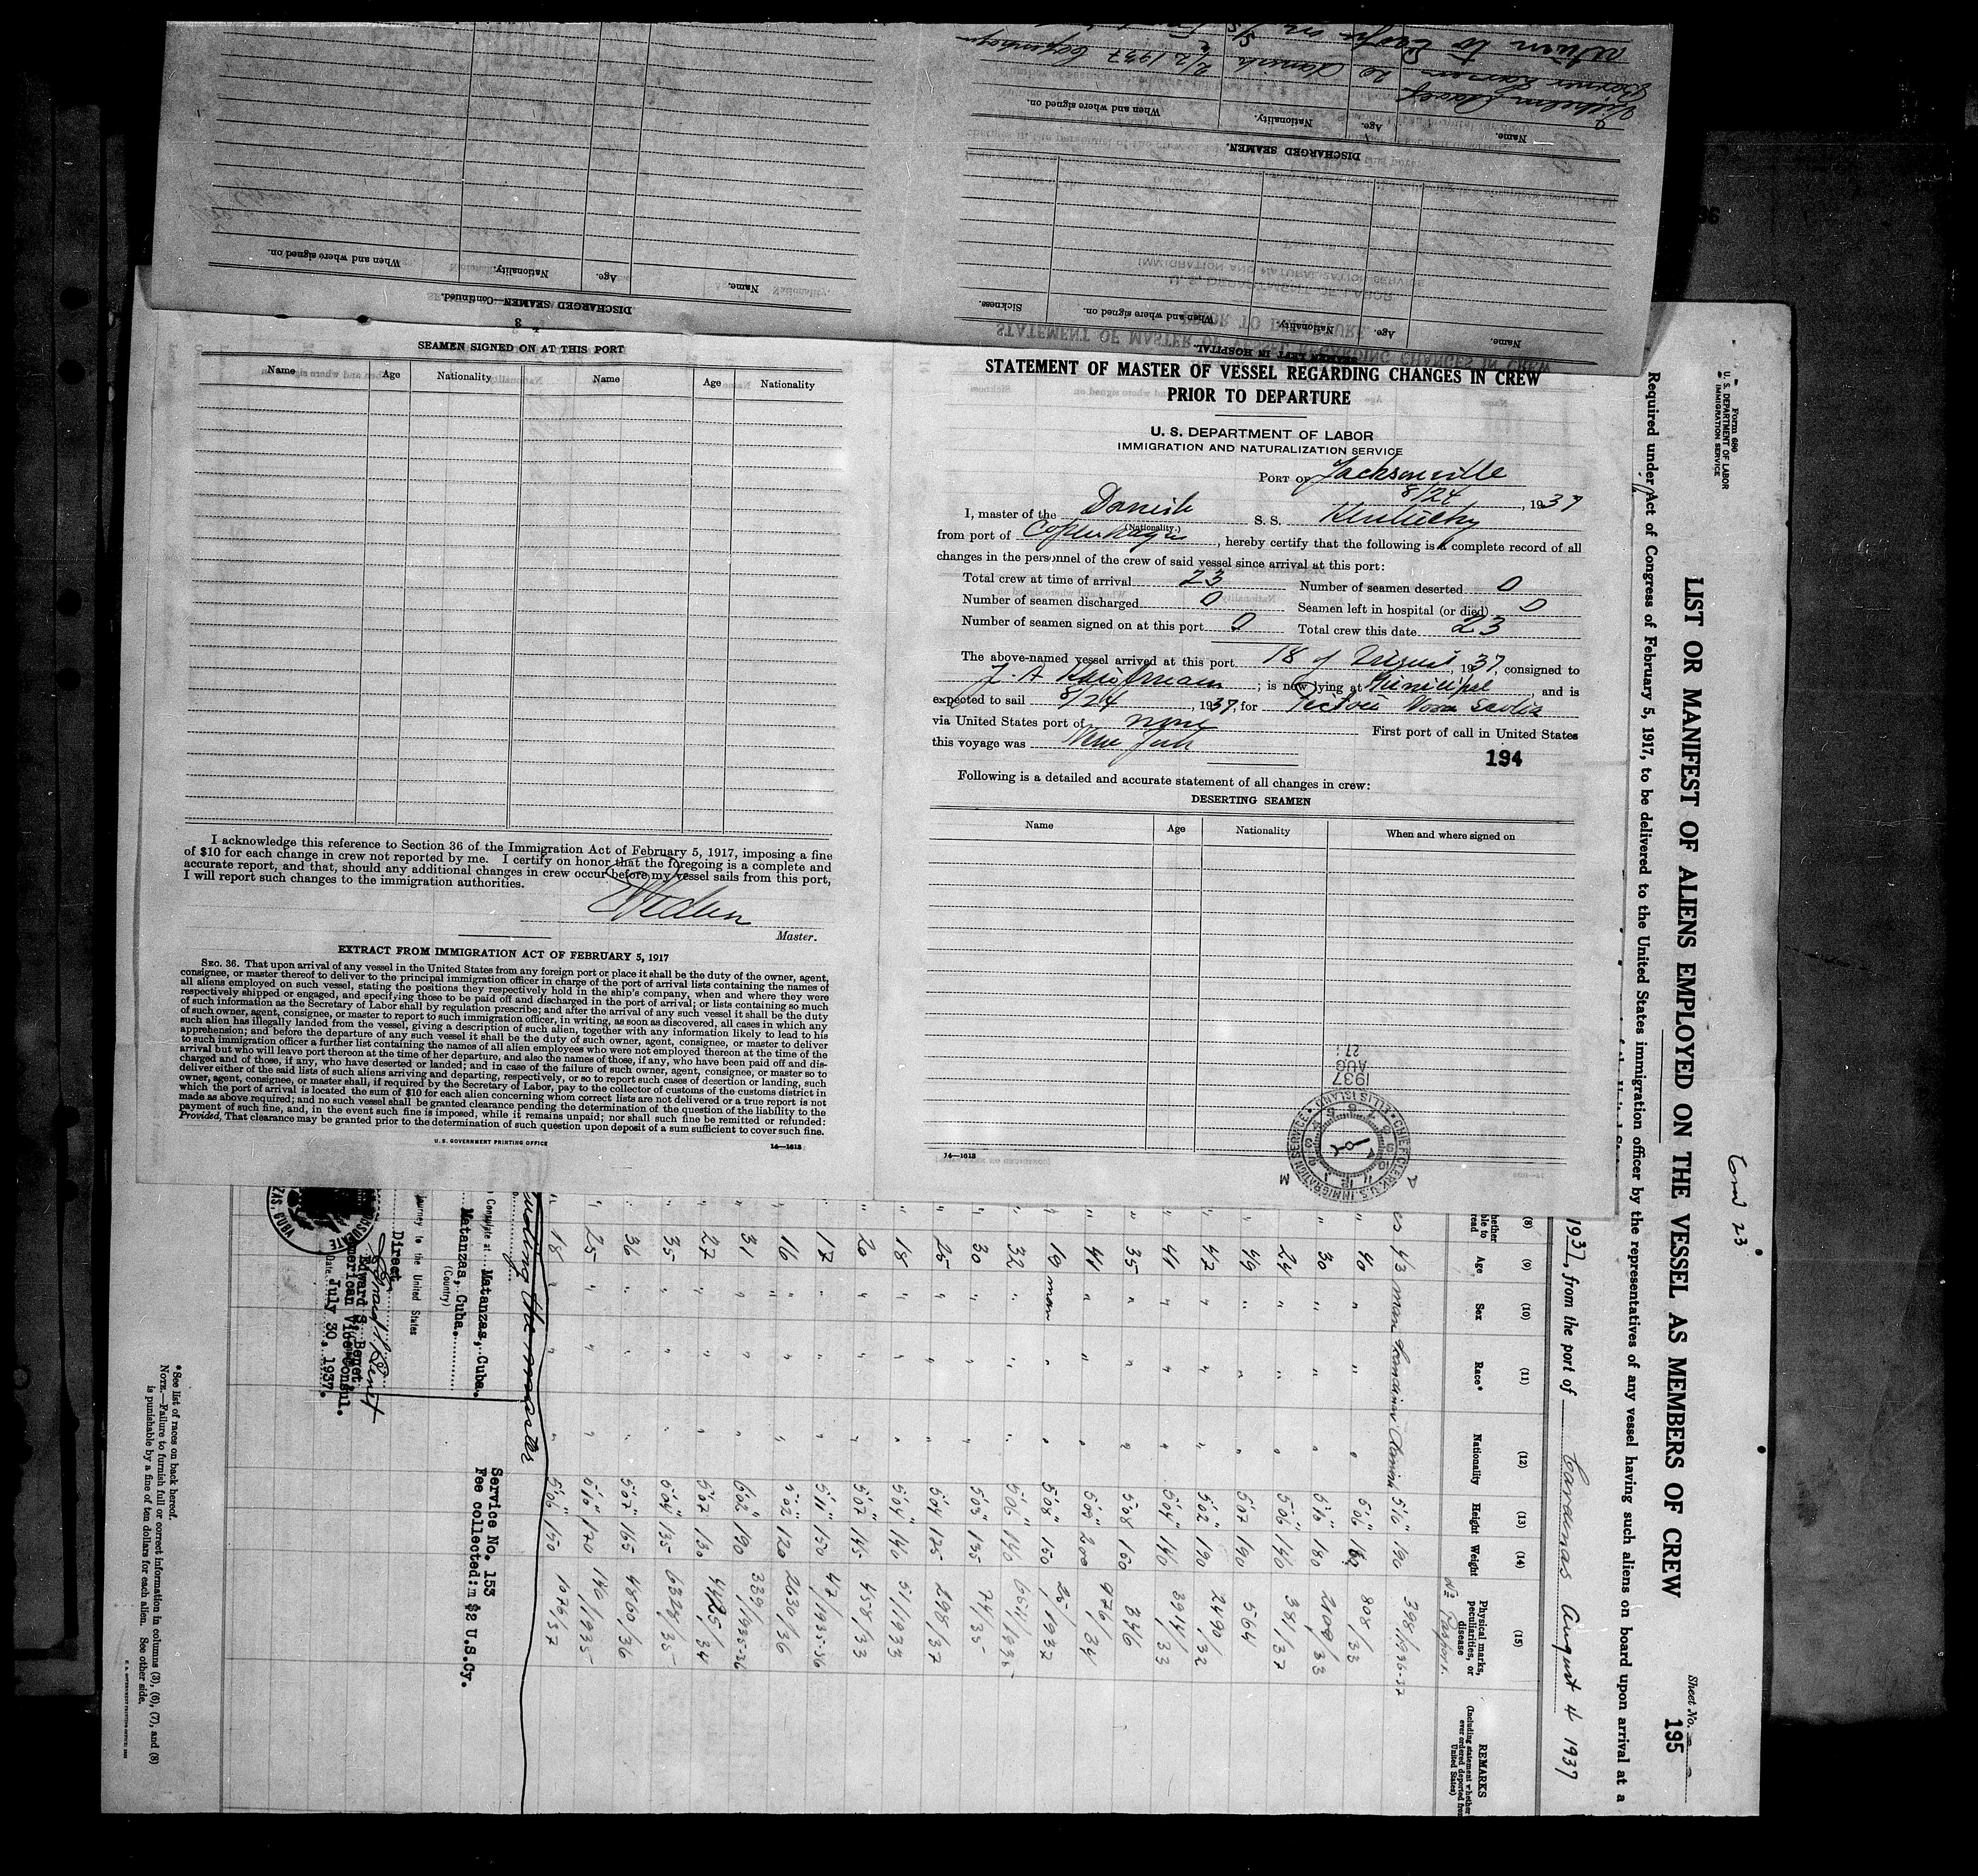 return to Europe on S/S
Vilhelm
Larsen 20 Danish 2/2 1937 Copenhagen
Name. Age. Nationality. When and where signed on.
DISCHARGED SEAMEN.
Name. Age. Nationality. When and where signed on. Sickness.
SEAMEN LEFT IN HOSPITAL.
Name. Age. Nationality. When and where signed on.
DISCHARGED SEAMEN—Continued.
3
SEAMEN SIGNED ON AT THIS PORT
Name Age Nationality Name Age Nationality
I acknowledge this reference to Section 36 of the Immigration Act of February 5, 1917, imposing a fine
of $10 for each change in crew not reported by me. I certify on honor that the foregoing is a complete and
accurate report, and that, should any additional changes in crew occur before my vessel sails from this port,
I will report such changes to the immigration authorities.
Master.
EXTRACT FROM IMMIGRATION ACT OF FEBRUARY 5, 1917
SEC. 36. That upon arrival of any vessel in the United States from any foreign port or place it shall be the duty of the owner, agent,
consignee, or master thereof to deliver to the principal immigration officer in charge of the port of arrival lists containing the names of
all aliens employed on such vessel, stating the positions they respectively hold in the ship's company, when and where they were
respectively shipped or engaged, and specifying those to be paid off and discharged in the port of arrival; or lists containing so much
of such information as the Secretary of Labor shall by regulation prescribe; and after the arrival of any such vessel it shall be the duty
of such owner, agent, consignee, or master to report to such immigration officer, in writing, as soon as discovered, all cases in which any
such alien has illegally landed from the vessel, giving a description of such alien, together with any information likely to lead to his
apprehension; and before the departure of any such vessel it shall be the duty of such owner, agent, consignee, or master to deliver
to such immigration officer a further list containing the names of all alien employees who were not employed thereon at the time of the
arrival but who will leave port thereon at the time of her departure, and also the names of those, if any, who have been paid off and dis-
charged and of those, if any, who have deserted or landed; and in case of the failure of such owner, agent, consignee, or master so to
deliver either of the said lists of such aliens arriving and departing, respectively, or so to report such cases of desertion or landing, such
owner, agent, consignee, or master shall, if required by the Secretary of Labor, pay to the collector of customs of the customs district in
which the port of arrival is located the sum of $10 for each alien concerning whom correct lists are not delivered or a true report is not
made as above required; and no such vessel shall be granted clearance pending the determination of the question of the liability to the
payment of such fine, and, in the event such fine is imposed, while it remains unpaid; nor shall such fine be remitted or refunded:
Provided, That clearance may be granted prior to the determination of such question upon deposit of a sum sufficient to cover such fine.
U. S. GOVERNMENT PRINTING OFFICE 14—1613
STATEMENT OF MASTER OF VESSEL REGARDING CHANGES IN CREW
PRIOR TO DEPARTURE
U. S. DEPARTMENT OF LABOR
IMMIGRATION AND NATURALIZATION SERVICE
PORT OF Jacksonville
8/24, 1937
I, master of the Danish S. S. Kentucky
(Nationality.)
from port of Copenhagen, hereby certify that the following is a complete record of all
changes in the personnel of the crew of said vessel since arrival at this port:
Total crew at time of arrival 23 Number of seamen deserted 0
Number of seamen discharged 0 Seamen left in hospital (or died) 0
Number of seamen signed on at this port 0 Total crew this date 23
The above-named vessel arrived at this port 18 of August, 1937, consigned to
J. A. Kaufmann; is now lying at Municipal, and is
expected to sail 8/24, 1937, for Pictou Nova Scotia
via United States port of none First port of call in United States
this voyage was New York
194
Following is a detailed and accurate statement of all changes in crew:
DESERTING SEAMEN
Name Age Nationality When and where signed on
14—1613
1937
AUG
27
CHIEF CLERK, U.S. IMMIGRATION SERVICE
ELLIS ISLAND
Form 680
U. S. DEPARTMENT OF LABOR
IMMIGRATION SERVICE
Crew 23
Sheet No.
195
LIST OR MANIFEST OF ALIENS EMPLOYED ON THE VESSEL AS MEMBERS OF CREW
Required under Act of Congress of February 5, 1917, to be delivered to the United States immigration officer by the representatives of any vessel having such aliens on board upon arrival at a
1937, from the port of Cardenas August 4 1937
(8) (9) (10) (11) (12) (13) (14) (15)
Age Sex Race* Nationality Height Weight Physical marks, peculiarities, or disease REMARKS
(Including statement whether ever ordered deported from United States)
No Passport.
43 man Scandinav Danish 5'10" 190 398/1936-37
40 " " " 5'06" 162 808/33
30 " " " 5'10" 180 2109/33
24 " " " 5'06" 140 381/37
49 " " " 5'07 190 564
42 " " " 5'02" 190 2490/32
41 " " " 5'04" 140 3914/33
35 " " " 5'08 160 346
41 " " " 5'09" 200 976/34
19 man " " 5'08" 150 26/1937
32 " " " 5'06" 140 6511/1935
30 " " " 5'03" 135 74/35
25 " " " 5'04 125 298/37
18 " " " 5'04" 140 51/1933
20 " " " 5'07 145 458/33
17 " " " 5'11" 150 47/1935-36
16 " " " 5'02" 120 2630/36
31 " " " 6'02" 190 339/1935-36
27 " " " 5'07 130 4425/34
35 " " " 5'04" 135 6328/35
36 " " " 5'07" 165 4860/36
25 " " " 5'10" 170 140/1935
18 " " " 5'06" 150 1076/37
including the master
Consulate at Matanzas, Cuba.
Matanzas, Cuba.
(Country)
journey to the United States
Direct
Edward S. Benet
American Vice Consul.
Date July 30, 1937.
Service No. 153
Fee collected: $2 U.S.Cy.
*See list of races on back hereof.
NOTE.—Failure to furnish full or correct information in columns (3), (6), (7), and (8)
is punishable by a fine of ten dollars for each alien. See other side.